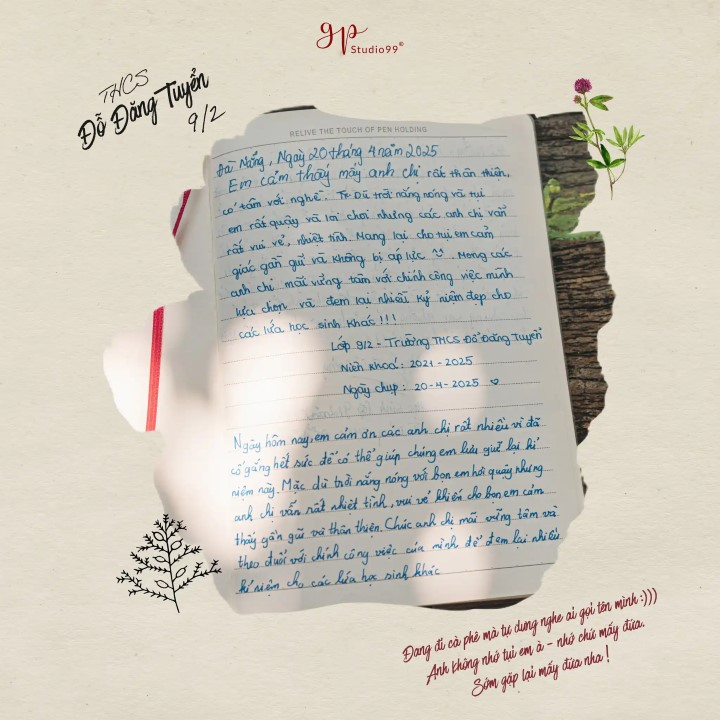 gp
Studio99®
THCS
Đỗ Đăng Tuyển
9/2
RELIVE THE TOUCH OF PEN HOLDING
Đà Nẵng, Ngày 20 tháng 4 năm 2025
Em cảm thấy mấy anh chị rất thân thiện,
có tâm với nghề. Dù trời nắng nóng và tụi
em rất quậy và lơi chơi nhưng các anh chị vẫn
rất vui vẻ, nhiệt tình. Mang lại cho tụi em cảm
giác gần gũi và không bị áp lực. Mong các
anh chị mãi vững tâm với chính công việc mình
lựa chọn và đem lại nhiều kỷ niệm đẹp cho
các lứa học sinh khác!!!
Lớp 9/2 - Trường THCS Đỗ Đăng Tuyển
Niên khoá: 2021 - 2025
Ngày chụp: 20-4-2025 ♡
Ngày hôm nay, em cảm ơn các anh chị rất nhiều vì đã
cố gắng hết sức để có thể giúp chúng em lưu giữ lại kỉ
niệm này. Mặc dù trời nắng nóng với bọn em hơi quậy nhưng
anh chị vẫn rất nhiệt tình, vui vẻ khiến cho bọn em cảm
thấy gần gũi và thân thiện. Chúc anh chị mãi vững tâm và
theo đuổi với chính công việc của mình để đem lại nhiều
kỉ niệm cho các lứa học sinh khác
Đang đi cà phê mà tự dưng nghe ai gọi tên mình :)))
Anh không nhớ tụi em à - nhớ chứ mấy đứa.
Sớm gặp lại mấy đứa nha!